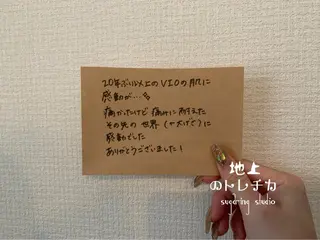 20年ぶりレベルのVIOの肌に
感動が…
痛かったけど 痛みに耐えた
その先の世界(←大げさ)に
感動でした
ありがとうございました!
地上
のトレチカ
sugaring studio